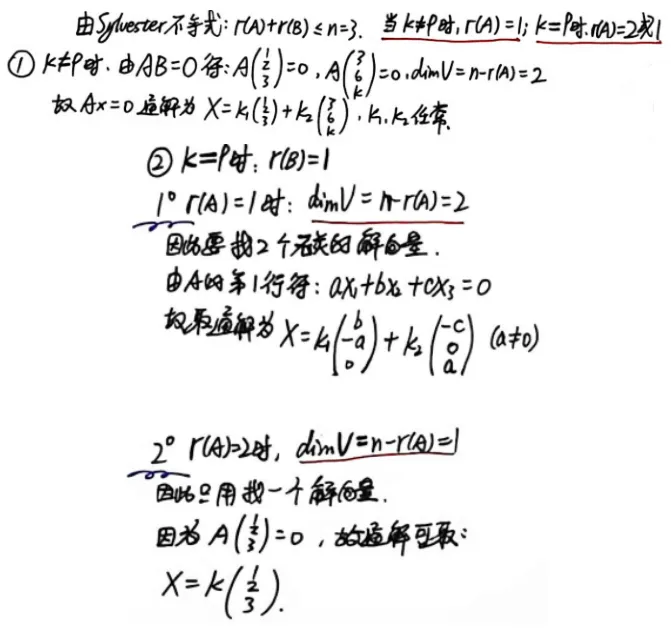 由Sylvester不等式: r(A)+r(B)≤n=3. 当k≠9时, r(A)=1; k=9时, r(A)=2或1
① k≠9时. 由AB=0得: A(1 2 3)=0, A(3 6 k)=0, dimV=n-r(A)=2
故Ax=0通解为 X=k₁(1 2 3)+k₂(3 6 k), k₁, k₂任常.
② k=9时: r(B)=1
1° r(A)=1时: dimV=n-r(A)=2
因此要找2个无关的解向量.
由A的第1行得: ax₁+bx₂+cx₃=0
故取通解为 X=k₁(b -a 0)+k₂(-c 0 a) (a≠0)
2° r(A)=2时, dimV=n-r(A)=1
因此只用找一个解向量.
因为 A(1 2 3)=0, 故通解可取:
X=k(1 2 3).